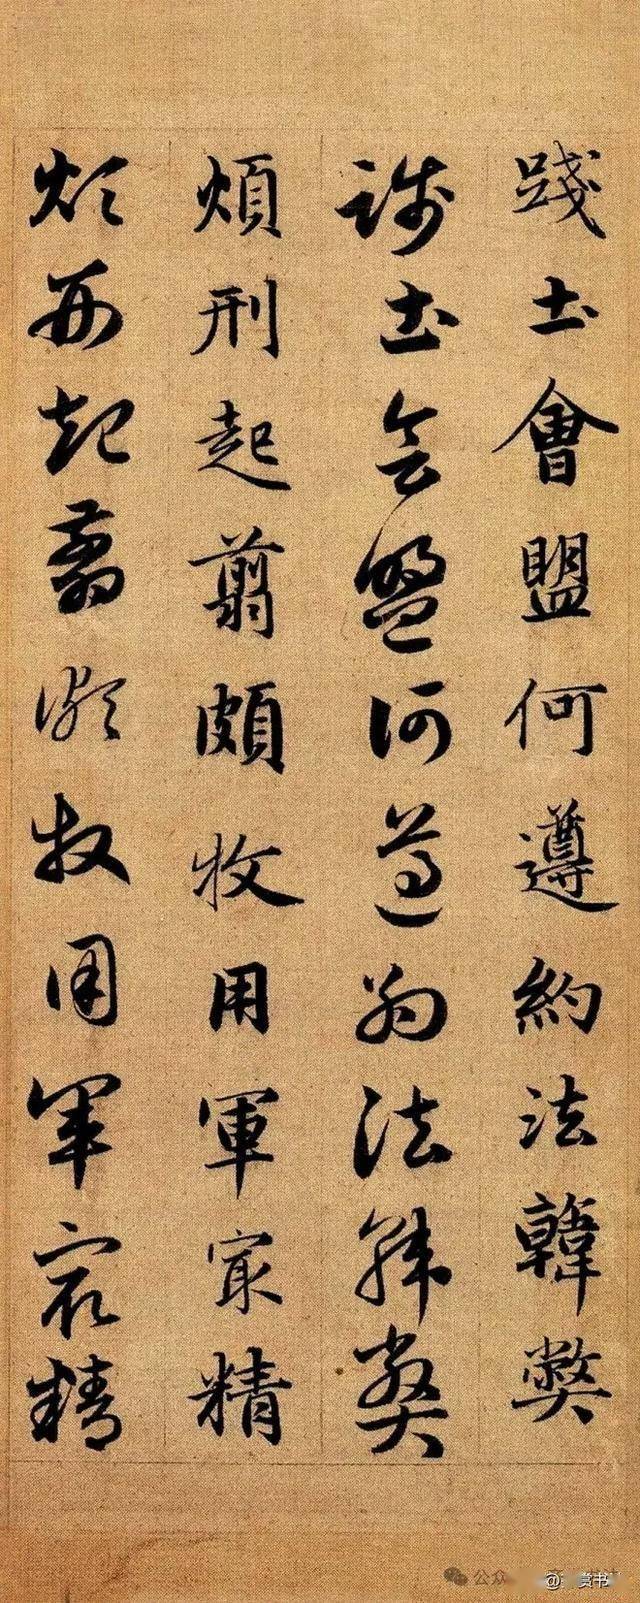 踐土會盟何遵約法韓弊
踐土會盟何遵約法韓弊
煩刑起翦頗牧用軍冣精
煩刑起翦頗牧用軍冣精
公众
@ 赏书